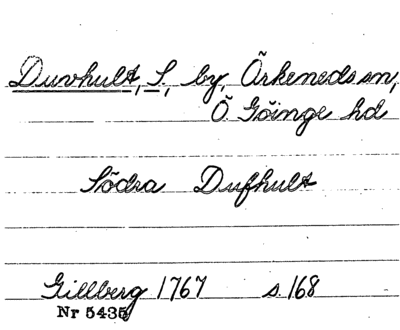 Duvhult, S., by, Örkeneds sn,
Ö. Göinge hd
Södra Dufhult
Gillberg 1767 s. 168
Nr 5435